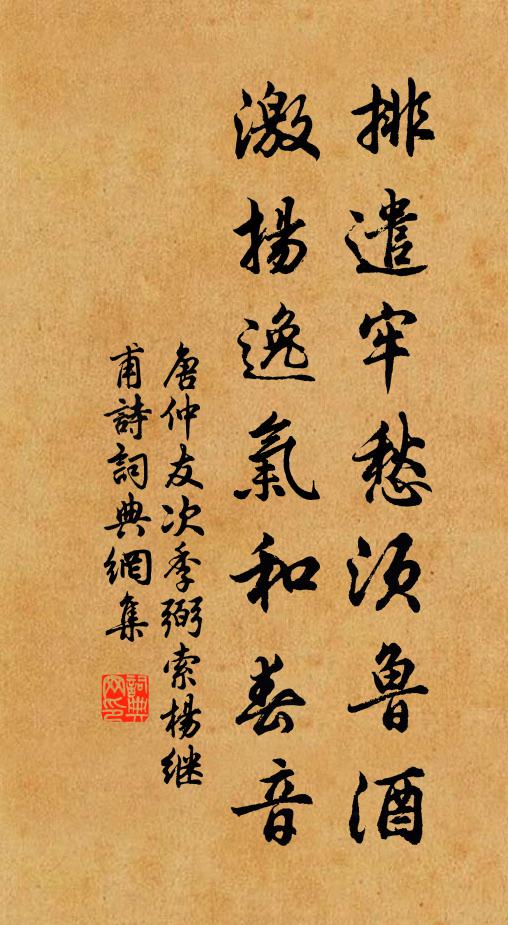 排遣牢愁須魯酒
激揚逸氣和春音
唐仲友次季弼索楊继
甫詩詞典網集
詞典
网印